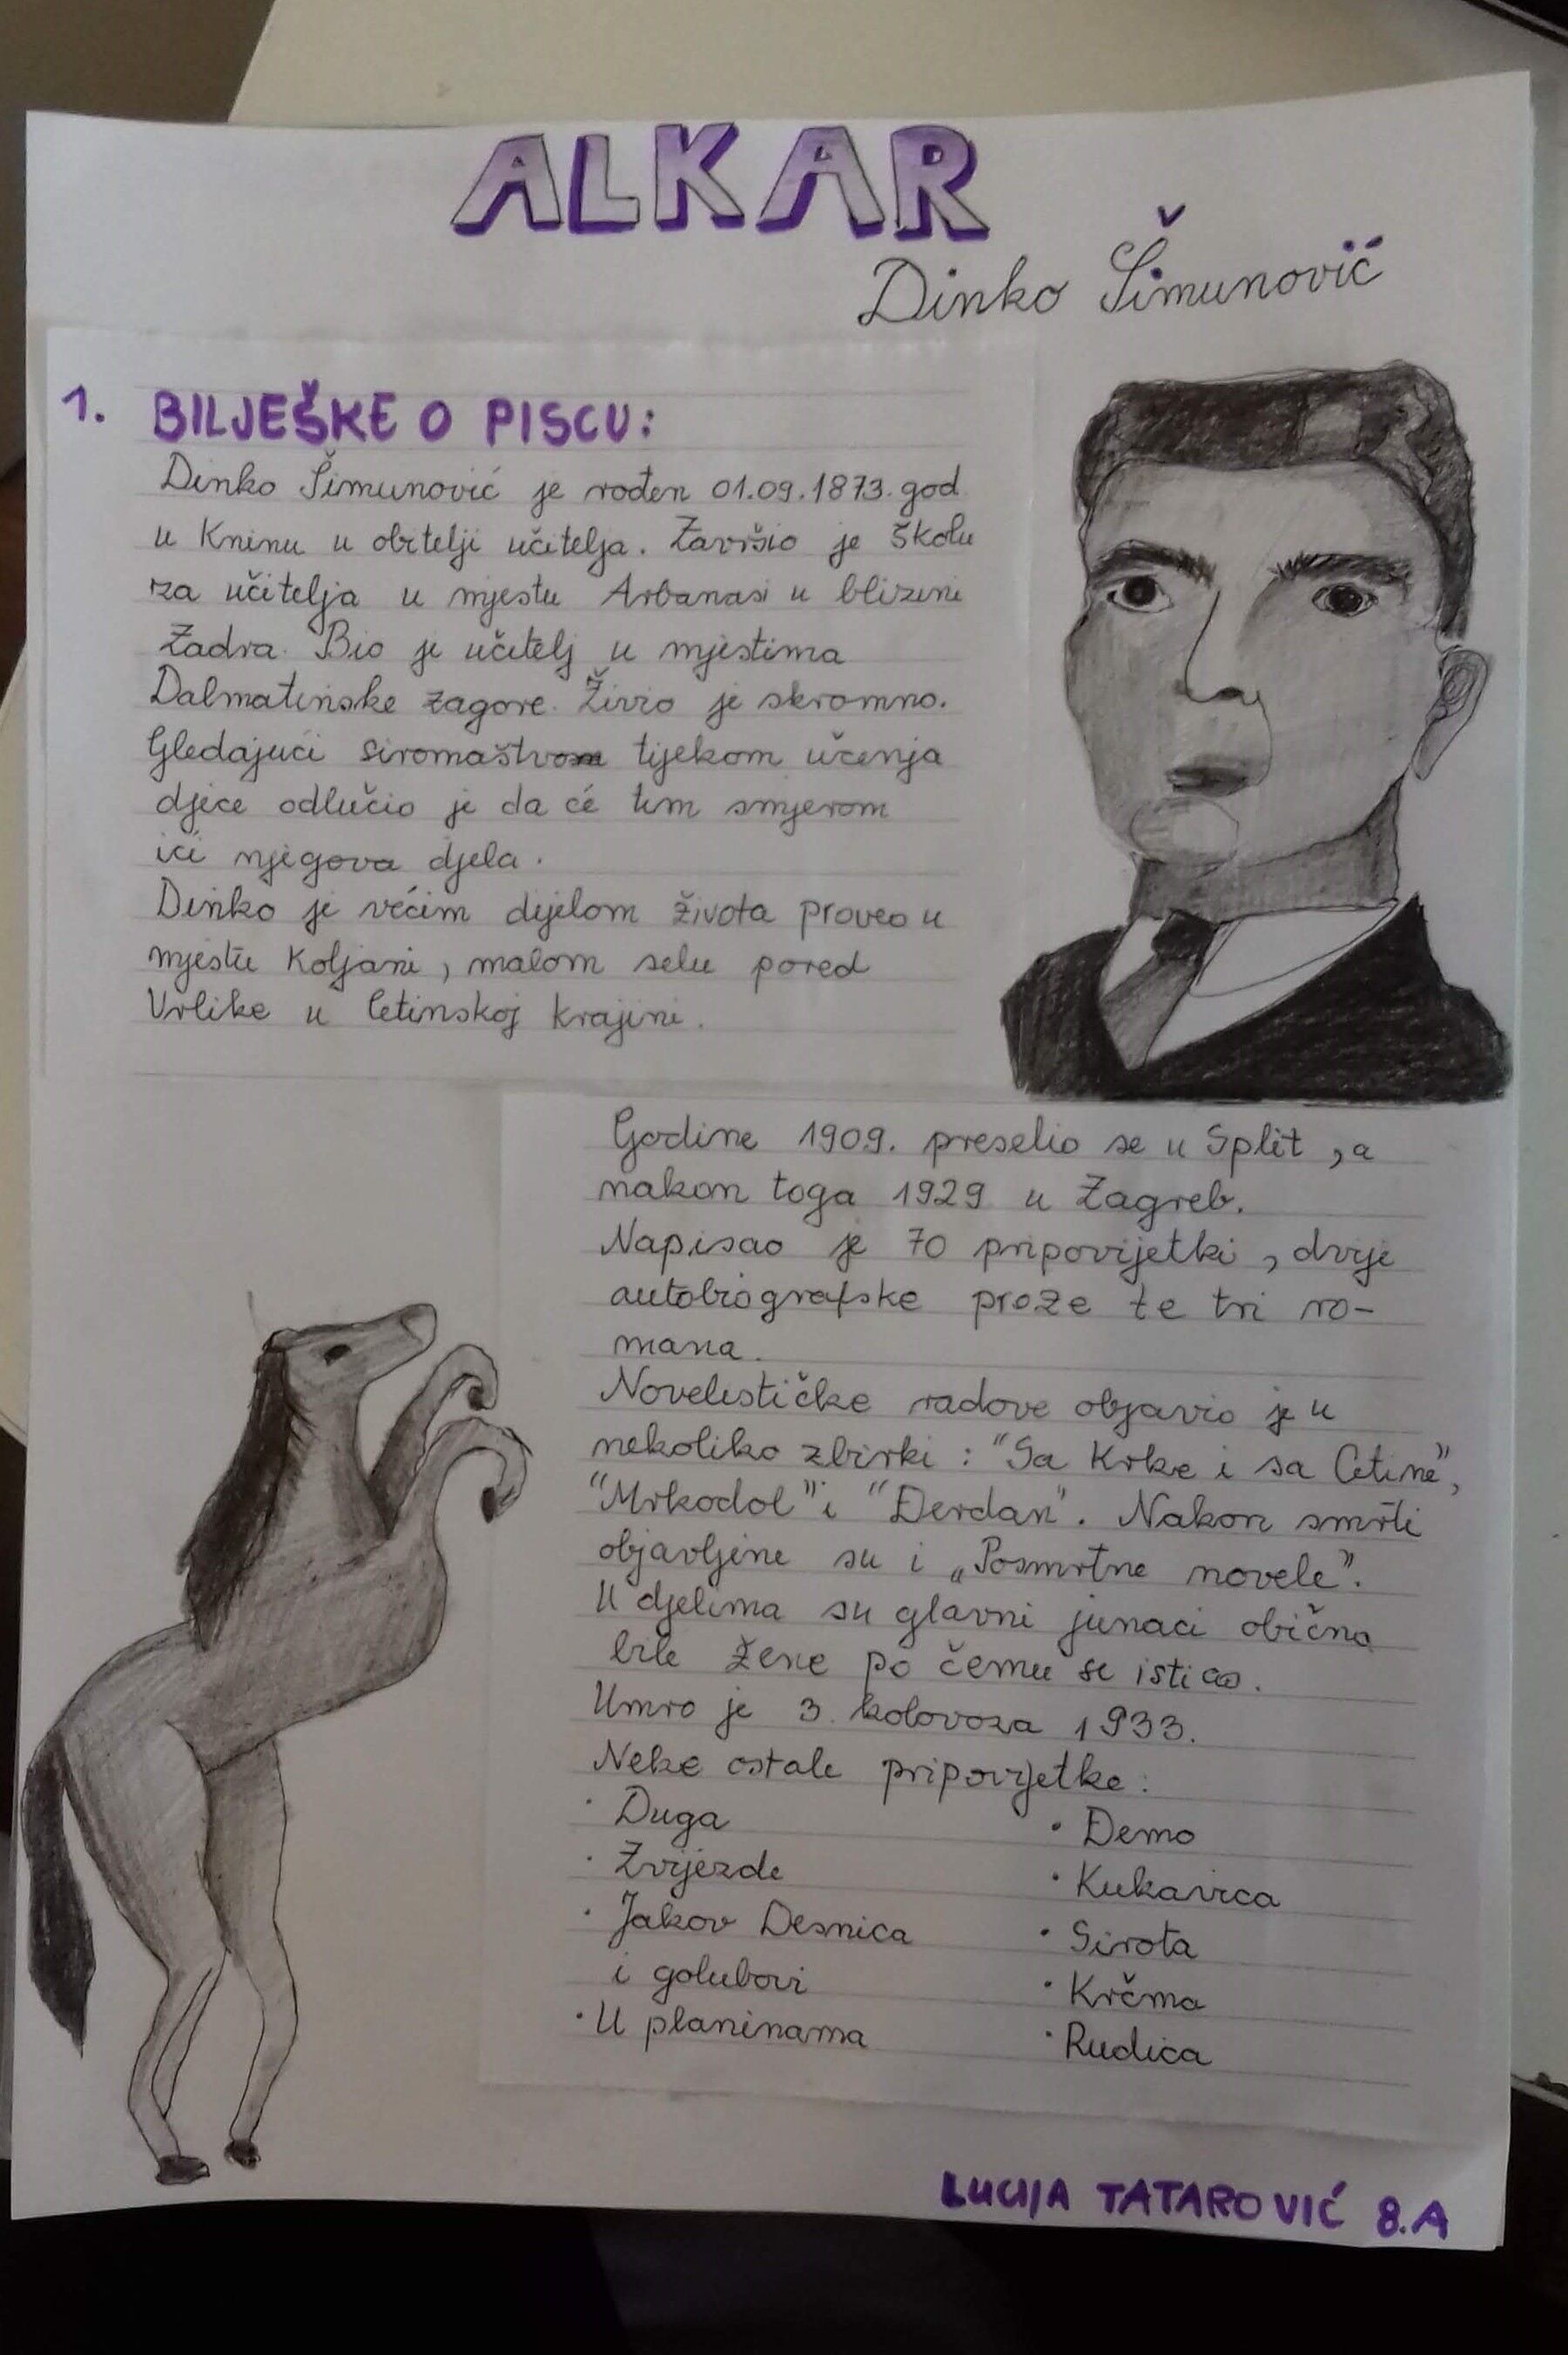 ALKAR
Dinko Šimunović
1. BILJEŠKE O PISCU:
Dinko Šimunović je rođen 01.09.1873. god
u Kninu u obitelji učitelja. Završio je školu
za učitelja u mjestu Arbanasi u blizini
Zadra. Bio je učitelj u mjestima
Dalmatinske zagore. Živio je skromno.
Gledajući siromaštvom tijekom učenja
djece odlučio je da će tim smjerom
ići njegova djela.
Dinko je većim dijelom života proveo u
mjestu Koljani, malom selu pored
Vrlike u Cetinskoj krajini.
Godine 1909. preselio se u Split, a
nakon toga 1929 u Zagreb.
Napisao je 70 pripovijetki, dvije
autobiografske proze te tri ro-
mana.
Novelističke radove objavio je u
nekoliko zbirki : "Sa Krke i sa Cetine",
"Mrkodol" i "Đerdan". Nakon smrti
objavljene su i „Posmrtne novele".
U djelima su glavni junaci obično
bile žene po čemu se isticao.
Umro je 3. kolovoza 1933.
Neke ostale pripovjetke:
• Duga
• Zvijezde
• Jakov Desnica
i golubovi
• U planinama
• Đemo
• Kukavica
• Sirota
• Krčma
• Rudica
LUCIJA TATAROVIĆ 8.A